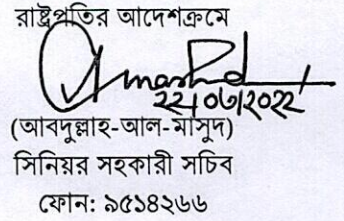 রাষ্ট্রপতির আদেশক্রমে
২২/০৬/২০২২
(আবদুল্লাহ-আল-মাসুদ)
সিনিয়র সহকারী সচিব
ফোন: ৯৫১৪২৬৬